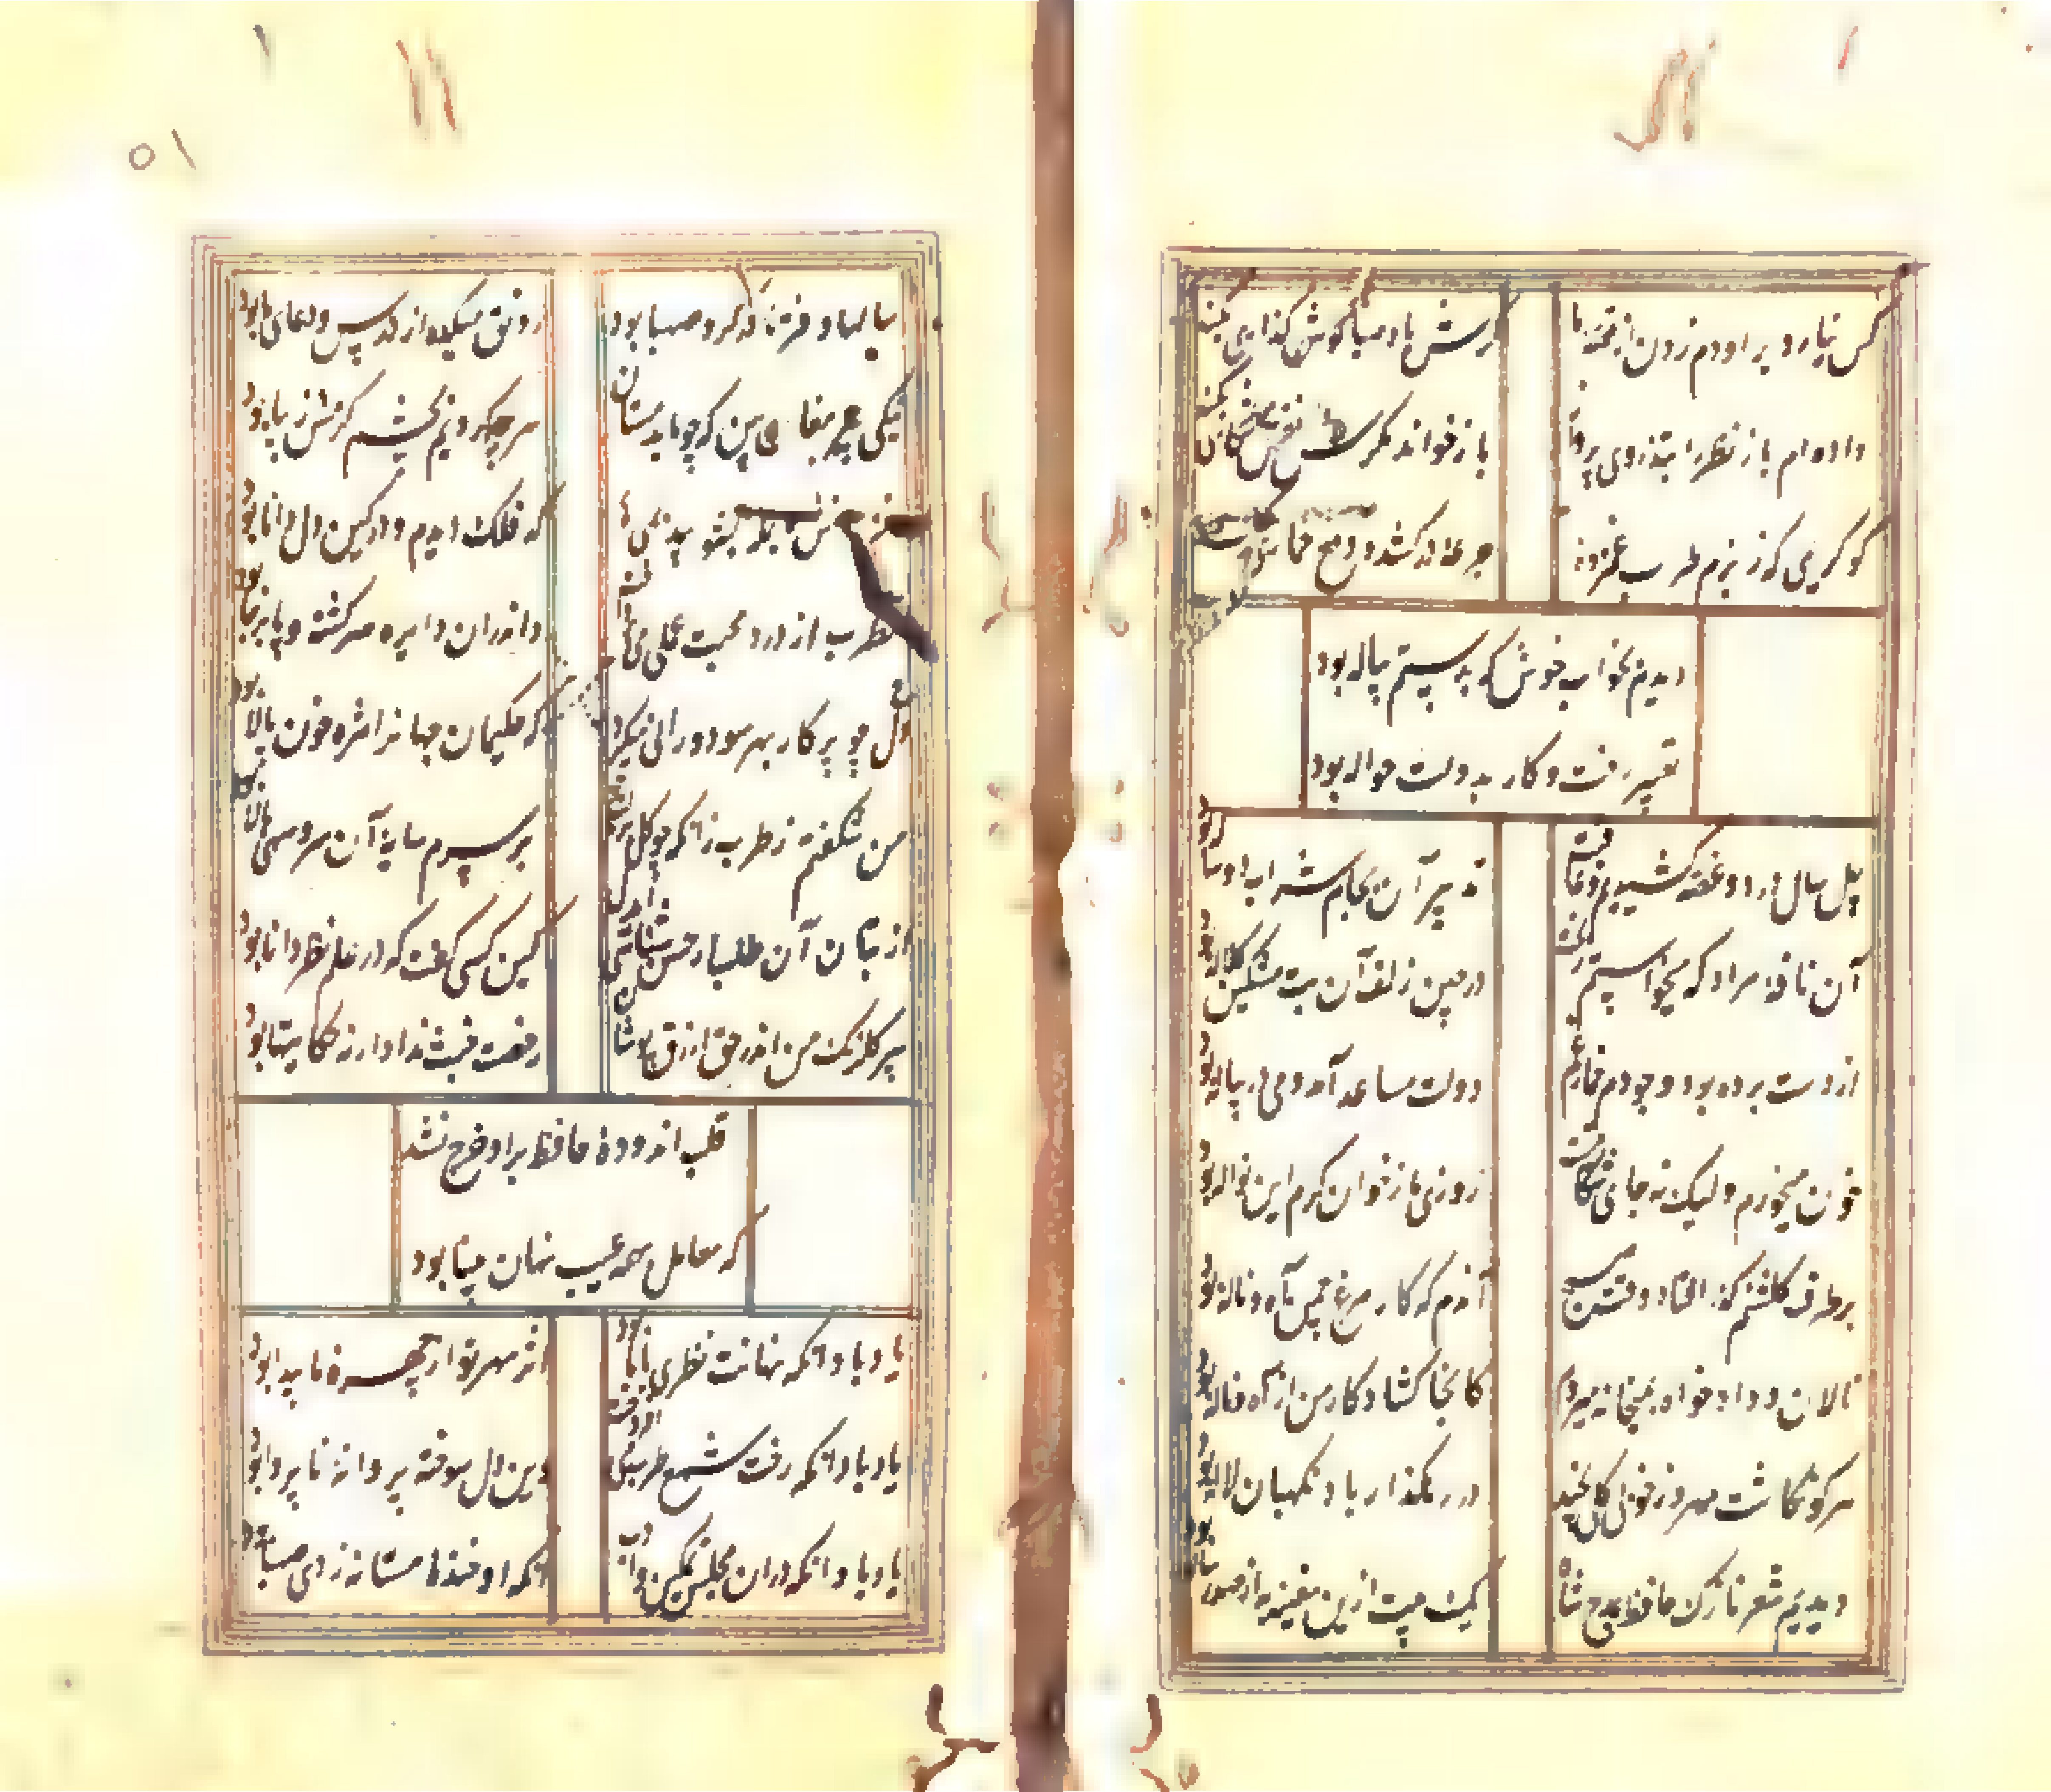 کس نیارد بر او دم زدن از قصه ما
مگرش باد صبا گوش گذاری بکند
داده ام باز نظر را بتذروی پرواز
باز خواند مگرش نقش شکاری بکند
کو کریمی که ز بزم طرب غمزده
جرعه در کشد و دفع خماری بکند
دیدم بخواب خوش که بدستم پیاله بود
تعبیر رفت و کار بدولت حواله بود
چل سال درد و غصه کشیدیم و عاقبت
تدبیر آن بجام شراب دوساله بود
آن نافه مراد که میخواستم ز بخت
در چین زلف آن بت مشکین کلاله بود
از دست برده بود وجودم خمار غم
دولت مساعد آمد و می در پیاله بود
خون میخورم ولیک نه جای شکایتست
روزی ما ز خوان کرم این نواله بود
بر طرف گلشنم گذر افتاد وقت صبح
آندم که کار مرغ چمن آه و ناله بود
نالان و دادخواه بمیخانه میروم
کانجا گشاد کار من از آه و ناله بود
هر کو نکاشت مهر و ز خوبی گلی نچید
در رهگذار باد نگهبان لاله بود
دیدیم شعر دلکش حافظ بمدح شاه
یک بیت ازین سفینه به از صد رساله بود
سالها دفتر ما در گرو صهبا بود
رونق میکده از درس و دعای ما بود
نیکی پیر مغان بین که چو ما بدمستان
هر چه کردیم بچشم کرمش زیبا بود
که فلک دیدم و در کین دل دانا بود
مطرب از درد محبت عملی می
دل چو پرکار بهر سو دورانی میکرد
واندران دایره سرگشته و پابرجا بود
که حکیمان جهانرا مژه خون پالا بود
من شکفتم ز طرب زانکه چو گل بر لب جوی
بر سرم سایه آن سرو سهی بالا بود
از بتان آن طلب ار حسن شناسی ای دل
کین کسی گفت که در علم نظر دانا بود
پیر گلرنگ من اندر حق ازرق پوشان
رخصت خبث نداد ار نه حکایتها بود
قلب اندوده حافظ بر او خرج نشد
که معامل همه عیب نهان بینا بود
یاد باد آنکه نهانت نظری با ما بود
اثر مهر تو از چهره ما پیدا بود
یاد باد آنکه رخت شمع طرب می افروخت
وین دل سوخته پروانه ناپروا بود
یاد باد آنکه در آن مجلس تمکین و ادب
آنکه او خنده مستانه زدی صهبا بود